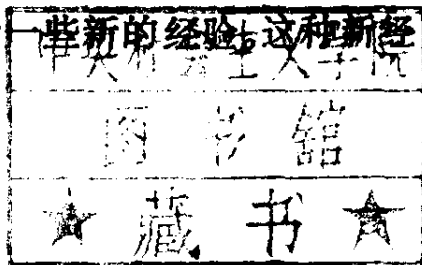 一些新的经验。这种新经
图书馆
★藏书★